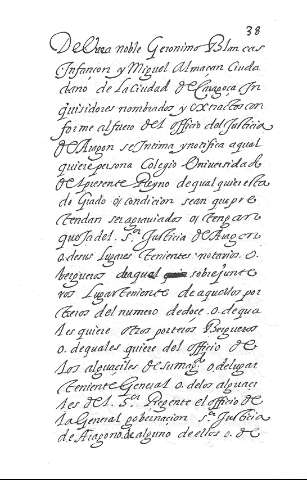 38
De los noble Geronimo Blancas
Infançon y Miguel Almaçan Ciuda
dano de La Ciudad de Çaragoça In
quisidores nombrados y extractos con
forme al fuero del officio del Justicia
de Aragon se Intima y notifica a qual
quiere persona Colegio Universidad
del presente Reyno de qual quier esta
do Grado o condicion sean que pre
tendan ser agraviados o tengan
quexa del Sr. Justicia de Aragon
o de sus Lugares tenientes notarios o
bergueros de aqual sobrejunte
ros Lugarteniente de aquellos por
teros del numero de doce o de qua
les quiere otros porteros Bergueros
o de quales quiere del officio de
Los alguaciles de su magd. o de lugar
teniente General o de los alguaci
les del Sr. Regente el officio de
La General gobernacion Sr. Justicia
de Aragon o de alguno de ellos o de